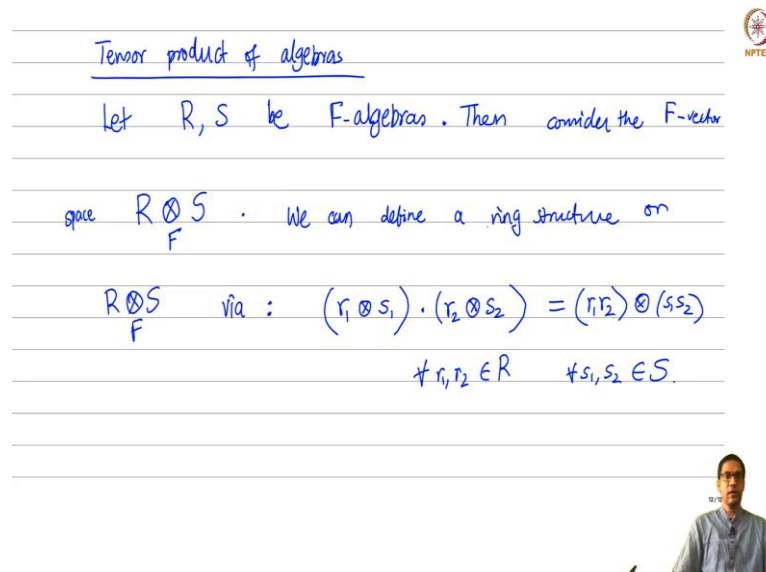 Tensor product of algebras
NPTE
Let R, S be F-algebras. Then consider the F-vector
space R ⊗ S . We can define a ring structure on
F
R ⊗ S via : (r₁ ⊗ s₁) · (r₂ ⊗ s₂) = (r₁r₂) ⊗ (s₁s₂)
F
∀ r₁, r₂ ∈ R ∀ s₁, s₂ ∈ S.